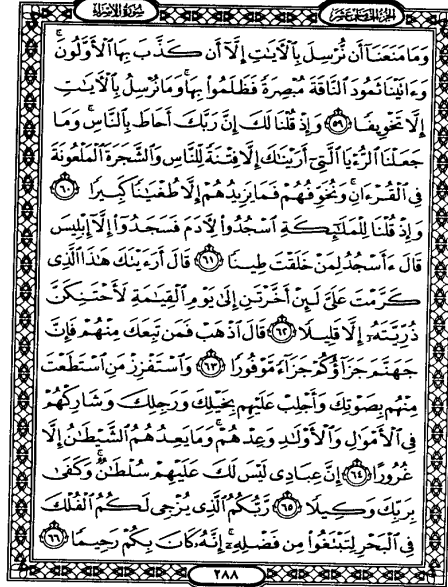 سُورَةُ الْإِسْرَاءِ
الجُزْءُ الخَامِسَ عَشَرَ
وَمَا مَنَعَنَآ أَن نُّرْسِلَ بِٱلْءَايَٰتِ إِلَّآ أَن كَذَّبَ بِهَا ٱلْأَوَّلُونَۚ
وَءَاتَيْنَا ثَمُودَ ٱلنَّاقَةَ مُبْصِرَةً فَظَلَمُوا۟ بِهَاۚ وَمَا نُرْسِلُ بِٱلْءَايَٰتِ
إِلَّا تَخْوِيفًا ٥٩ وَإِذْ قُلْنَا لَكَ إِنَّ رَبَّكَ أَحَاطَ بِٱلنَّاسِۚ وَمَا
جَعَلْنَا ٱلرُّءْيَا ٱلَّتِىٓ أَرَيْنَٰكَ إِلَّا فِتْنَةً لِّلنَّاسِ وَٱلشَّجَرَةَ ٱلْمَلْعُونَةَ
فِى ٱلْقُرْءَانِۚ وَنُخَوِّفُهُمْ فَمَا يَزِيدُهُمْ إِلَّا طُغْيَٰنًا كَبِيرًا ٦٠
وَإِذْ قُلْنَا لِلْمَلَٰٓئِكَةِ ٱسْجُدُوا۟ لِءَادَمَ فَسَجَدُوٓا۟ إِلَّآ إِبْلِيسَ
قَالَ ءَأَسْجُدُ لِمَنْ خَلَقْتَ طِينًا ٦١ قَالَ أَرَءَيْتَكَ هَٰذَا ٱلَّذِى
كَرَّمْتَ عَلَىَّ لَئِنْ أَخَّرْتَنِ إِلَىٰ يَوْمِ ٱلْقِيَٰمَةِ لَأَحْتَنِكَنَّ
ذُرِّيَّتَهُۥٓ إِلَّا قَلِيلًا ٦٢ قَالَ ٱذْهَبْ فَمَن تَبِعَكَ مِنْهُمْ فَإِنَّ
جَهَنَّمَ جَزَآؤُكُمْ جَزَآءً مَّوْفُورًا ٦٣ وَٱسْتَفْزِزْ مَنِ ٱسْتَطَعْتَ
مِنْهُم بِصَوْتِكَ وَأَجْلِبْ عَلَيْهِم بِخَيْلِكَ وَرَجِلِكَ وَشَارِكْهُمْ
فِى ٱلْأَمْوَٰلِ وَٱلْأَوْلَٰدِ وَعِدْهُمْۚ وَمَا يَعِدُهُمُ ٱلشَّيْطَٰنُ إِلَّا
غُرُورًا ٦٤ إِنَّ عِبَادِى لَيْسَ لَكَ عَلَيْهِمْ سُلْطَٰنٌۚ وَكَفَىٰ
بِرَبِّكَ وَكِيلًا ٦٥ رَّبُّكُمُ ٱلَّذِى يُزْجِى لَكُمُ ٱلْفُلْكَ
فِى ٱلْبَحْرِ لِتَبْتَغُوا۟ مِن فَضْلِهِۦٓۚ إِنَّهُۥ كَانَ بِكُمْ رَحِيمًا ٦٦
٢٨٨